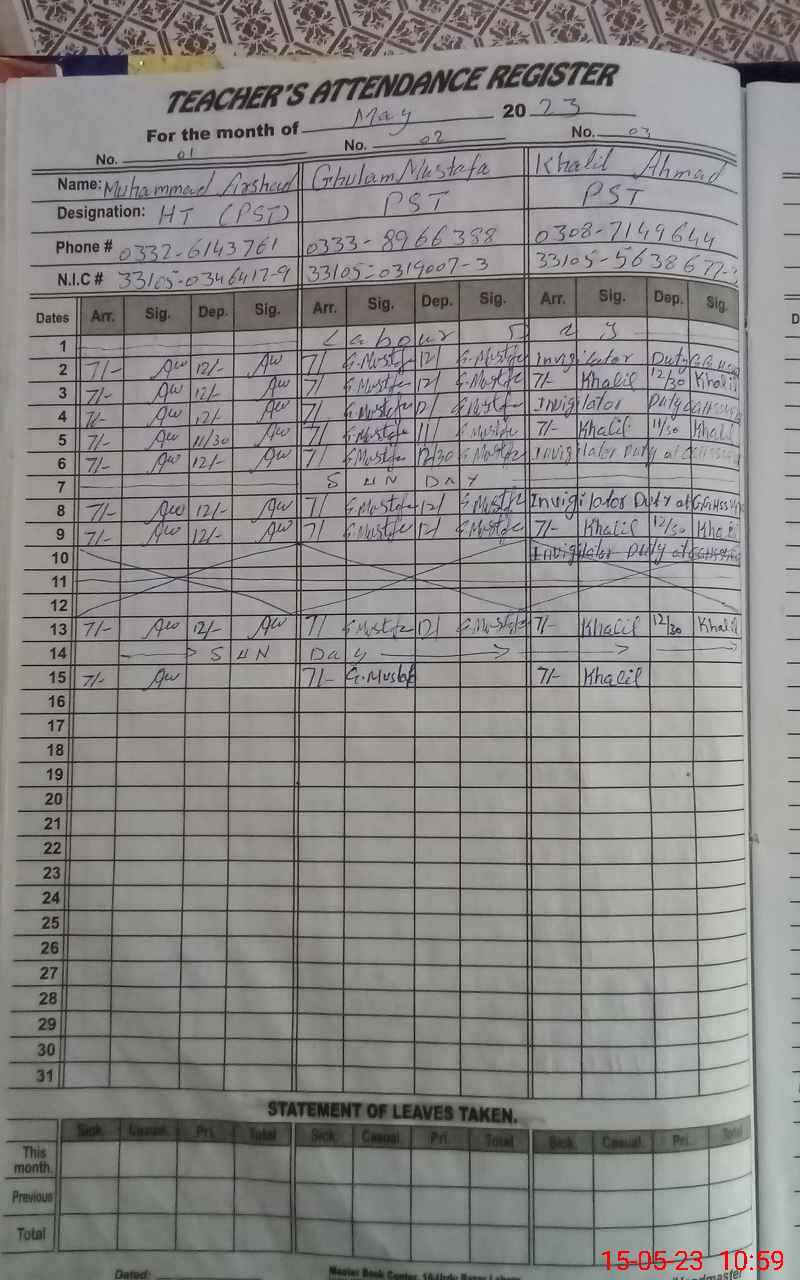 TEACHER'S ATTENDANCE REGISTER
For the month of May 2023
No. 01 No. 02 No. 03
Name: Muhammad Arshad Ghulam Mustafa Khalil Ahmad
Designation: HT (PST) PST PST
Phone # 0332-6143761 0333-8966388 0308-7149644
N.I.C # 33105-0346417-9 33105-0319007-3 33105-5638677-
Dates Arr. Sig. Dep. Sig. Arr. Sig. Dep. Sig. Arr. Sig. Dep. Sig.
1 Labour Day
2 7/- 12/- 7/ G.Mustafa 12/ G.Mustafa Invigilator Duty
3 7/- 12/- 7/ G.Mustafa 12/ G.Mustafa 7/- Khalil 12/30 Khalil
4 7/- 12/- 7/ G.Mustafa 12/ G.Mustafa Invigilator Duty
5 7/- 11/30 7/ G.Mustafa 11/ G.Mustafa 7/- Khalil 11/30 Khalil
6 7/- 12/- 7/ G.Mustafa 12/30 G.Mustafa Invigilator Duty at
7 SUN DAY
8 7/- 12/- 7/ G.Mustafa 12/ G.Mustafa Invigilator Duty at
9 7/- 12/- 7/ G.Mustafa 12/ G.Mustafa 7/- Khalil 12/30 Khalil
10 Invigilator Duty at
11
12
13 7/- 12/- 7/ G.Mustafa 12/ G.Mustafa 7/- Khalil 12/30 Khalil
14 SUN Day
15 7/- 7/- G.Mustafa 7/- Khalil
16
17
18
19
20
21
22
23
24
25
26
27
28
29
30
31
STATEMENT OF LEAVES TAKEN.
Sick. Casual. Pri. Total Sick. Casual. Pri. Total Sick. Casual. Pri. Total
This month.
Previous
Total
Dated:
Master Book Center,
15-05-23 10:59